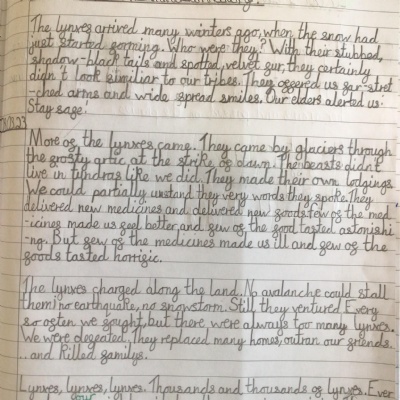 The lynxes arrived many winters ago, when the snow had
just started forming. Who were they? With their stubbed,
shadow-black tails and spotted, velvet fur, they certainly
didn't look similar to our tribes. They offered us far-stret
-ched arms and wide spread smiles. Our elders alerted us:
Stay safe!
More of the lynxes came. They came by glaciers through
the frosty artic at the strike of dawn. The beasts didn't
live in tundras like we did. They made their own lodgings.
We could partially unstand they very words they spoke. They
delivered new medicines and delivered new foods few of the med
-icines made us feel better, and few of the food tasted astonishi
-ng. But few of the medicines made us ill and few of the
foods tasted horrific.
The lynxes charged along the land. No avalanche could stall
them: no earthquake, no snowstorm. Still, they ventured. Every
so often we fought, but there were always too many lynxes.
We were defeated. They replaced many homes, outran our friends
... and killed familys.
Lynxes, lynxes, lynxes. Thousands and thousands of lynxes. Ever